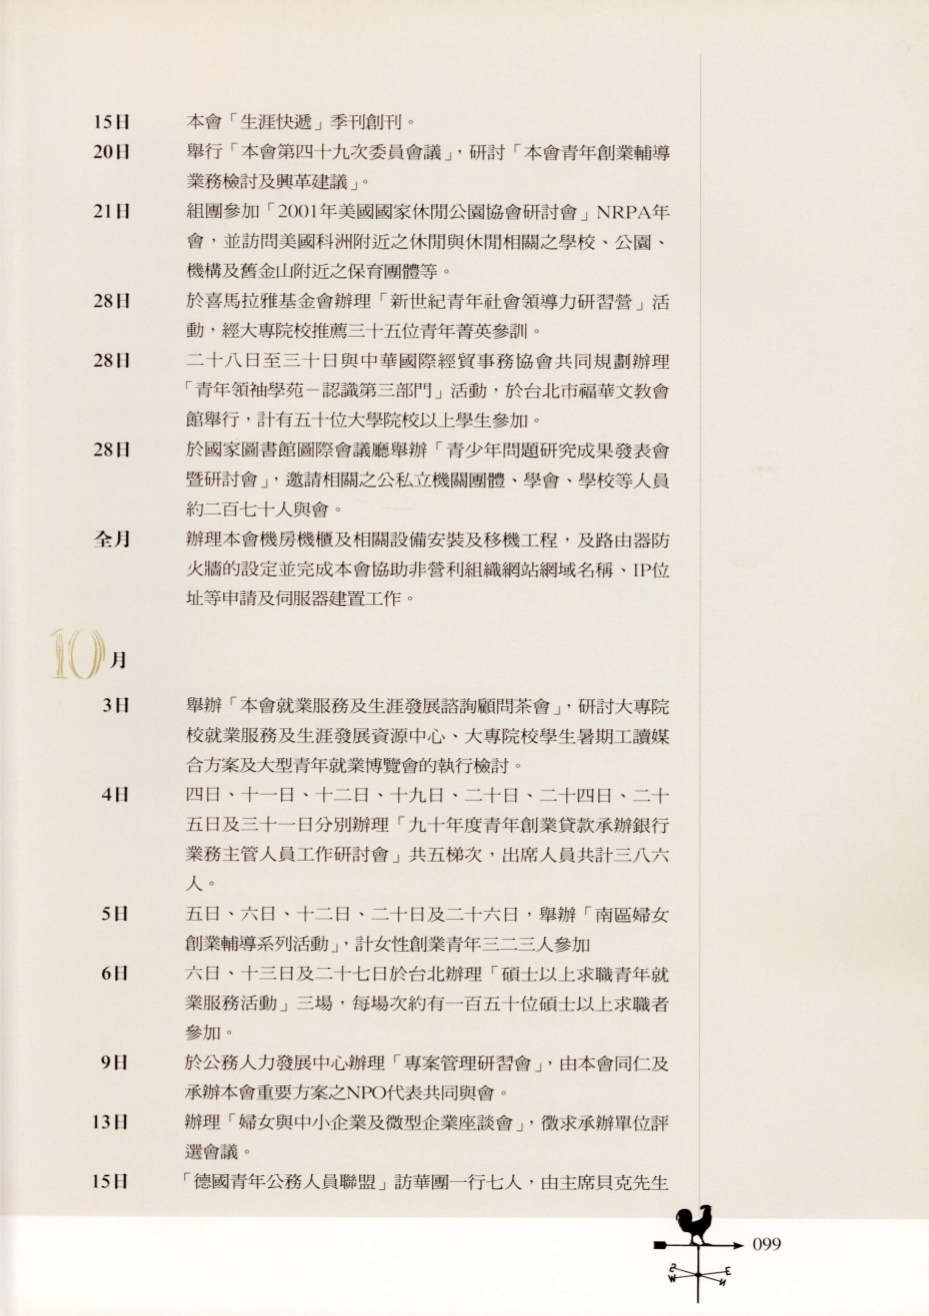 15日 本會「生涯快遞」季刊創刊。
20日 舉行「本會第四十九次委員會議」，研討「本會青年創業輔導
業務檢討及興革建議」。
21日 組團參加「2001年美國國家休閒公園協會研討會」NRPA年
會，並訪問美國科洲附近之休閒與休閒相關之學校、公園、
機構及舊金山附近之保育團體等。
28日 於喜馬拉雅基金會辦理「新世紀青年社會領導力研習營」活
動，經大專院校推薦三十五位青年菁英參訓。
28日 二十八日至三十日與中華國際經貿事務協會共同規劃辦理
「青年領袖學苑－認識第三部門」活動，於台北市福華文教會
館舉行，計有五十位大學院校以上學生參加。
28日 於國家圖書館圖際會議廳舉辦「青少年問題研究成果發表會
暨研討會」，邀請相關之公私立機關團體、學會、學校等人員
約二百七十人與會。
全月 辦理本會機房機櫃及相關設備安裝及移機工程，及路由器防
火牆的設定並完成本會協助非營利組織網站網域名稱、IP位
址等申請及伺服器建置工作。
10月
3日 舉辦「本會就業服務及生涯發展諮詢顧問茶會」，研討大專院
校就業服務及生涯發展資源中心、大專院校學生暑期工讀媒
合方案及大型青年就業博覽會的執行檢討。
4日 四日、十一日、十二日、十九日、二十日、二十四日、二十
五日及三十一日分別辦理「九十年度青年創業貸款承辦銀行
業務主管人員工作研討會」共五梯次，出席人員共計三八六
人。
5日 五日、六日、十二日、二十日及二十六日，舉辦「南區婦女
創業輔導系列活動」，計女性創業青年三二三人參加
6日 六日、十三日及二十七日於台北辦理「碩士以上求職青年就
業服務活動」三場，每場次約有一百五十位碩士以上求職者
參加。
9日 於公務人力發展中心辦理「專案管理研習會」，由本會同仁及
承辦本會重要方案之NPO代表共同與會。
13日 辦理「婦女與中小企業及微型企業座談會」，徵求承辦單位評
選會議。
15日 「德國青年公務人員聯盟」訪華團一行七人，由主席貝克先生
099
S E
W N